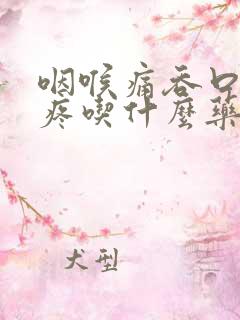 咽喉痛吞口
疼喫什麼藥
犬型